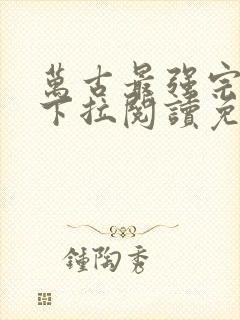 萬古最强宗
下拉閱讀免
鍾陶秀